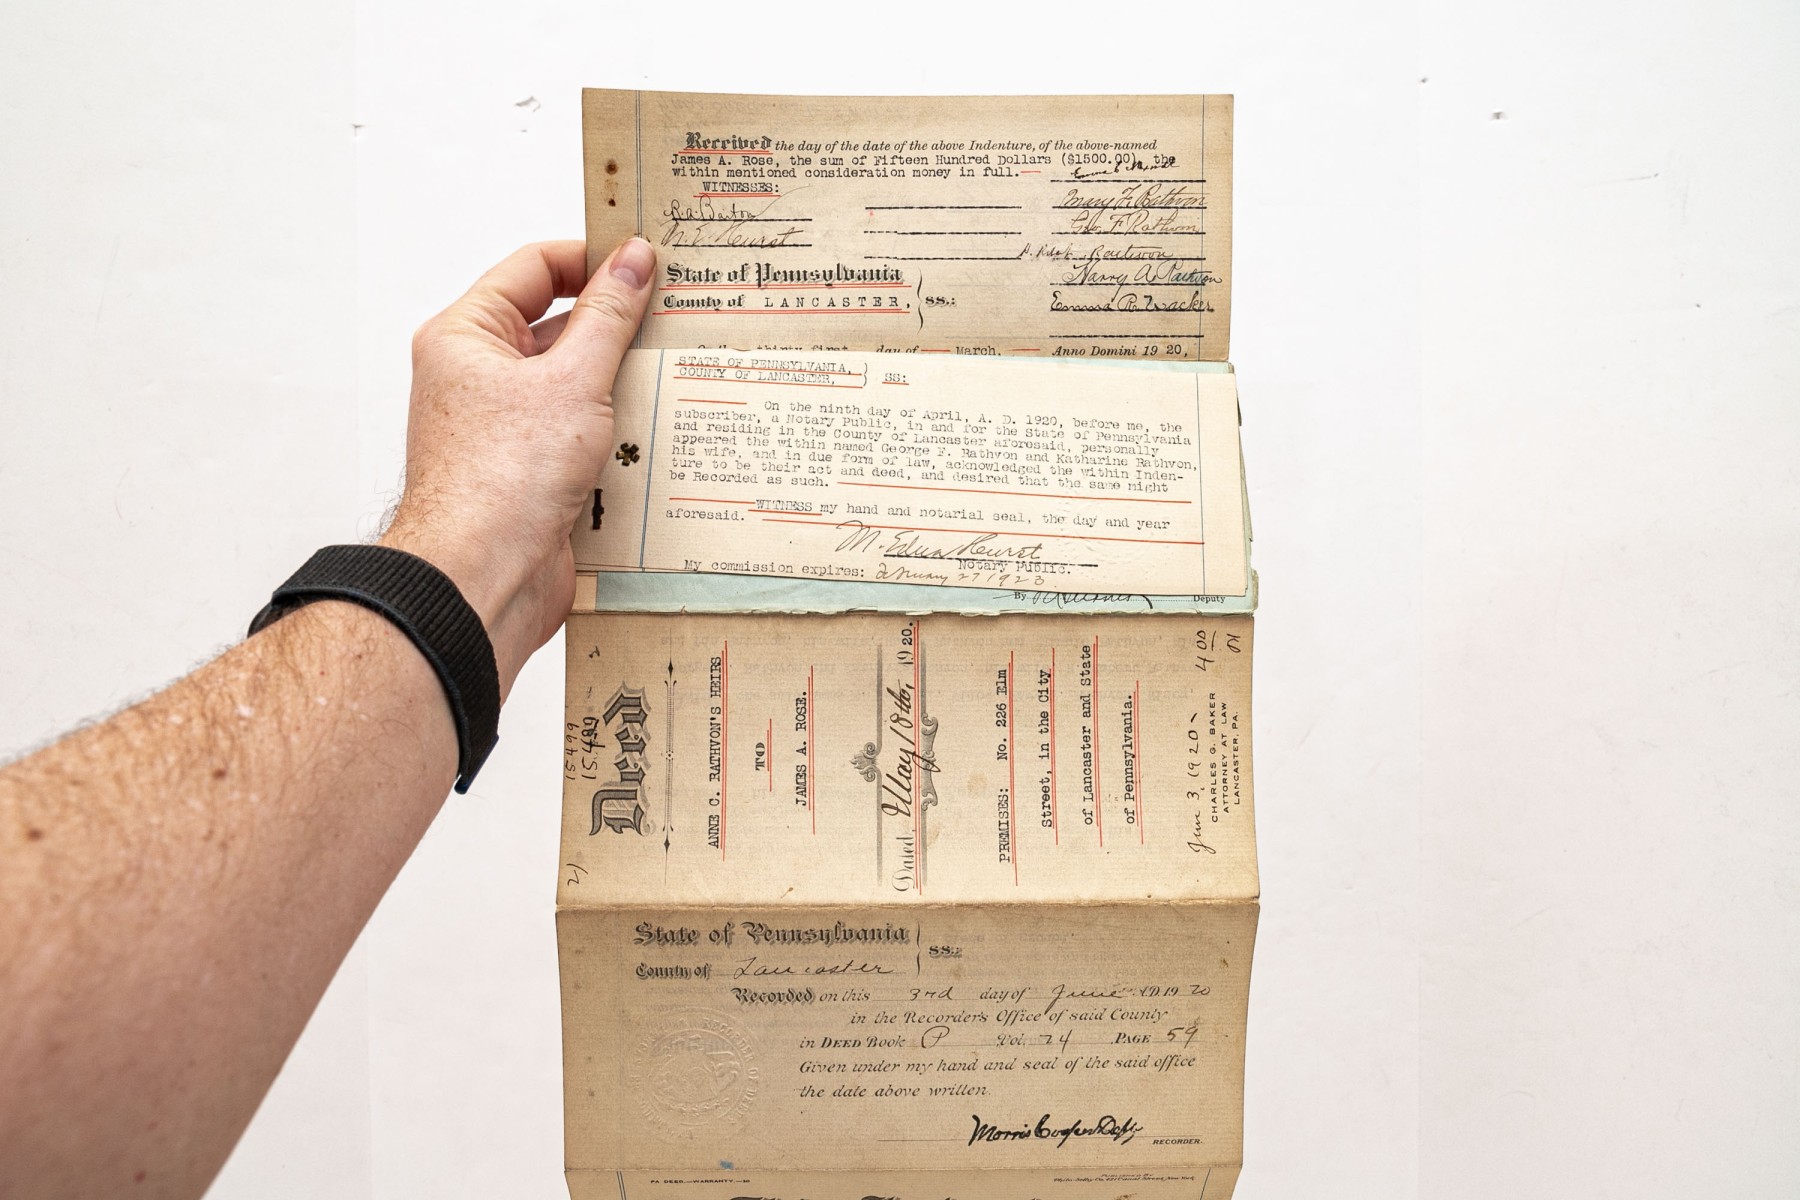 Received the day of the date of the above Indenture, of the above-named
James A. Rose, the sum of Fifteen Hundred Dollars ($1500.00), the
within mentioned consideration money in full.
WITNESSES:
Mary F. Rathvon
R. A. Barton
Geo. F. Rathvon
M. E. Hurst
Harry A. Rathvon
State of Pennsylvania
County of LANCASTER, } SS.:
Emma R.
thirty first day of March, Anno Domini 1920,
STATE OF PENNSYLVANIA,
COUNTY OF LANCASTER, } SS:
On the ninth day of April, A. D. 1920, before me, the
subscriber, a Notary Public, in and for the State of Pennsylvania
and residing in the County of Lancaster aforesaid, personally
appeared the within named George F. Rathvon and Katharine Rathvon,
his wife, and in due form of law, acknowledged the within Inden-
ture to be their act and deed, and desired that the same might
be Recorded as such.
WITNESS my hand and notarial seal, the day and year
aforesaid.
M. Edna Hurst
Notary Public.
My commission expires: February 27 1923
By Deputy
15499
15.499
2)
Deed
ANNE C. RATHVON'S HEIRS
TO
JAMES A. ROSE.
Dated, May 18th, 1920.
PREMISES: No. 226 Elm
Street, in the City
of Lancaster and State
of Pennsylvania.
June 3, 1920
4 00
CHARLES G. BAKER
ATTORNEY AT LAW
LANCASTER, PA.
State of Pennsylvania
County of Lancaster } SS.:
Recorded on this 3rd day of June A.D. 1920
in the Recorder's Office of said County
in DEED Book P Vol. 24 PAGE 59
Given under my hand and seal of the said office
the date above written.
Morris Cooper Depty
RECORDER.
RECORDER OF DEEDS
PA DEED.—WARRANTY.—